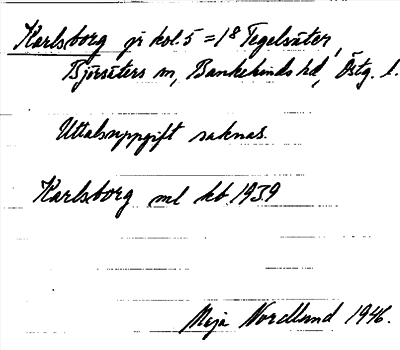 Karlsborg gi kol. 5 = 1⁸ Tegelsäter,
Björsäters sn, Bankekinds hd, Östg. l.
Uttalsuppgift saknas.
Karlsborg ml kb 1939
Maja Nordlund 1946.